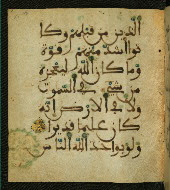 الذين من قبلهم وكا
نوا أشد منهم قوة
وما كان الله ليعجزه
من شيء في السموت
ولا في الأرض إنه
كان عليما قديرا
ولو يؤاخذ الله الناس